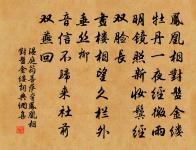 鳳凰相對盤金縷
牡丹一夜經微雨
明鏡照新妝鬢輕
雙臉長
畫樓相望久欄外
垂絲柳
音信不歸來社前
雙燕回
溫庭筠菩薩蠻鳳凰相
對盤金縷詞典網